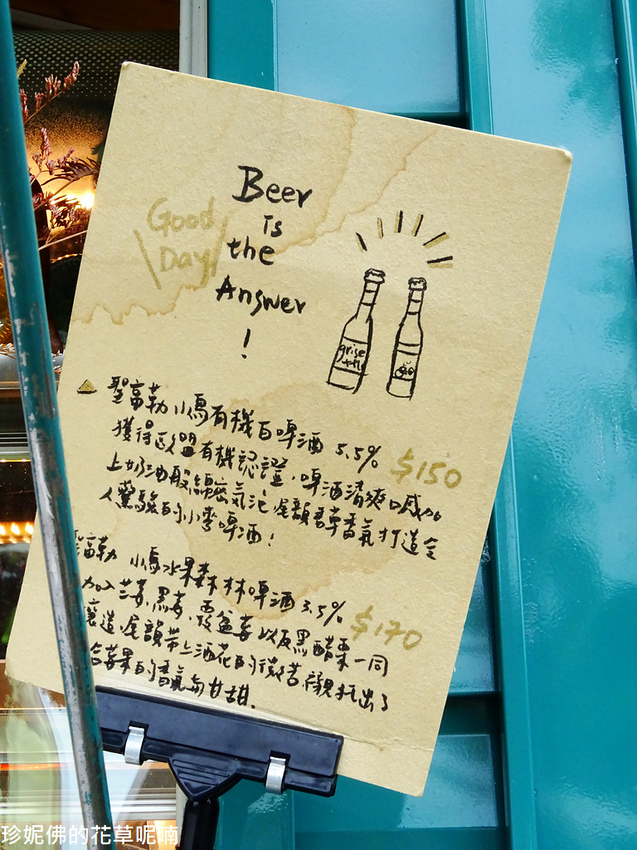 Beer
is
the
Answer
!
Good
Day
grisette
聖富勒 小鳥有機白啤酒 5.5% $150
獲得歐盟有機認證,啤酒清爽喊加
上奶油般綿密氣泡,尾韻香草香氣打造令
人驚艷的小麥啤酒!
聖富勒 小鳥水果森林啤酒 3.5% $170
加入草莓、黑莓、覆盆莓以及黑醋栗一同
釀造,尾韻帶上酒花的微苦,襯托出了
莓果的香氣與甘甜.
珍妮佛的花草呢喃